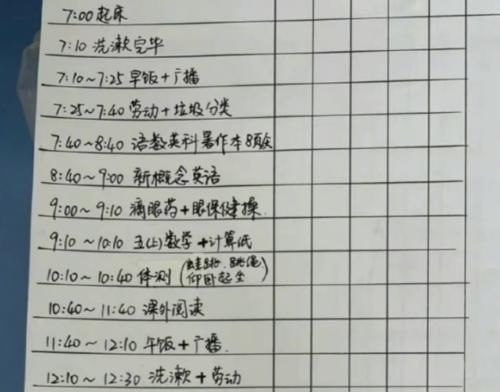 7:00起床
7:10 洗漱完毕
7:10~7:25 早饭+广播
7:25~7:40 劳动+垃圾分类
7:40~8:40 语数英科暑作本8页
8:40~9:00 新概念英语
9:00~9:10 滴眼药+眼保健操
9:10~10:10 五(上)数学+计算纸
10:10~10:40 体测(蛙跳、跳绳 仰卧起坐)
10:40~11:40 课外阅读
11:40~12:10 午饭+广播.
12:10~12:30 洗漱+劳动